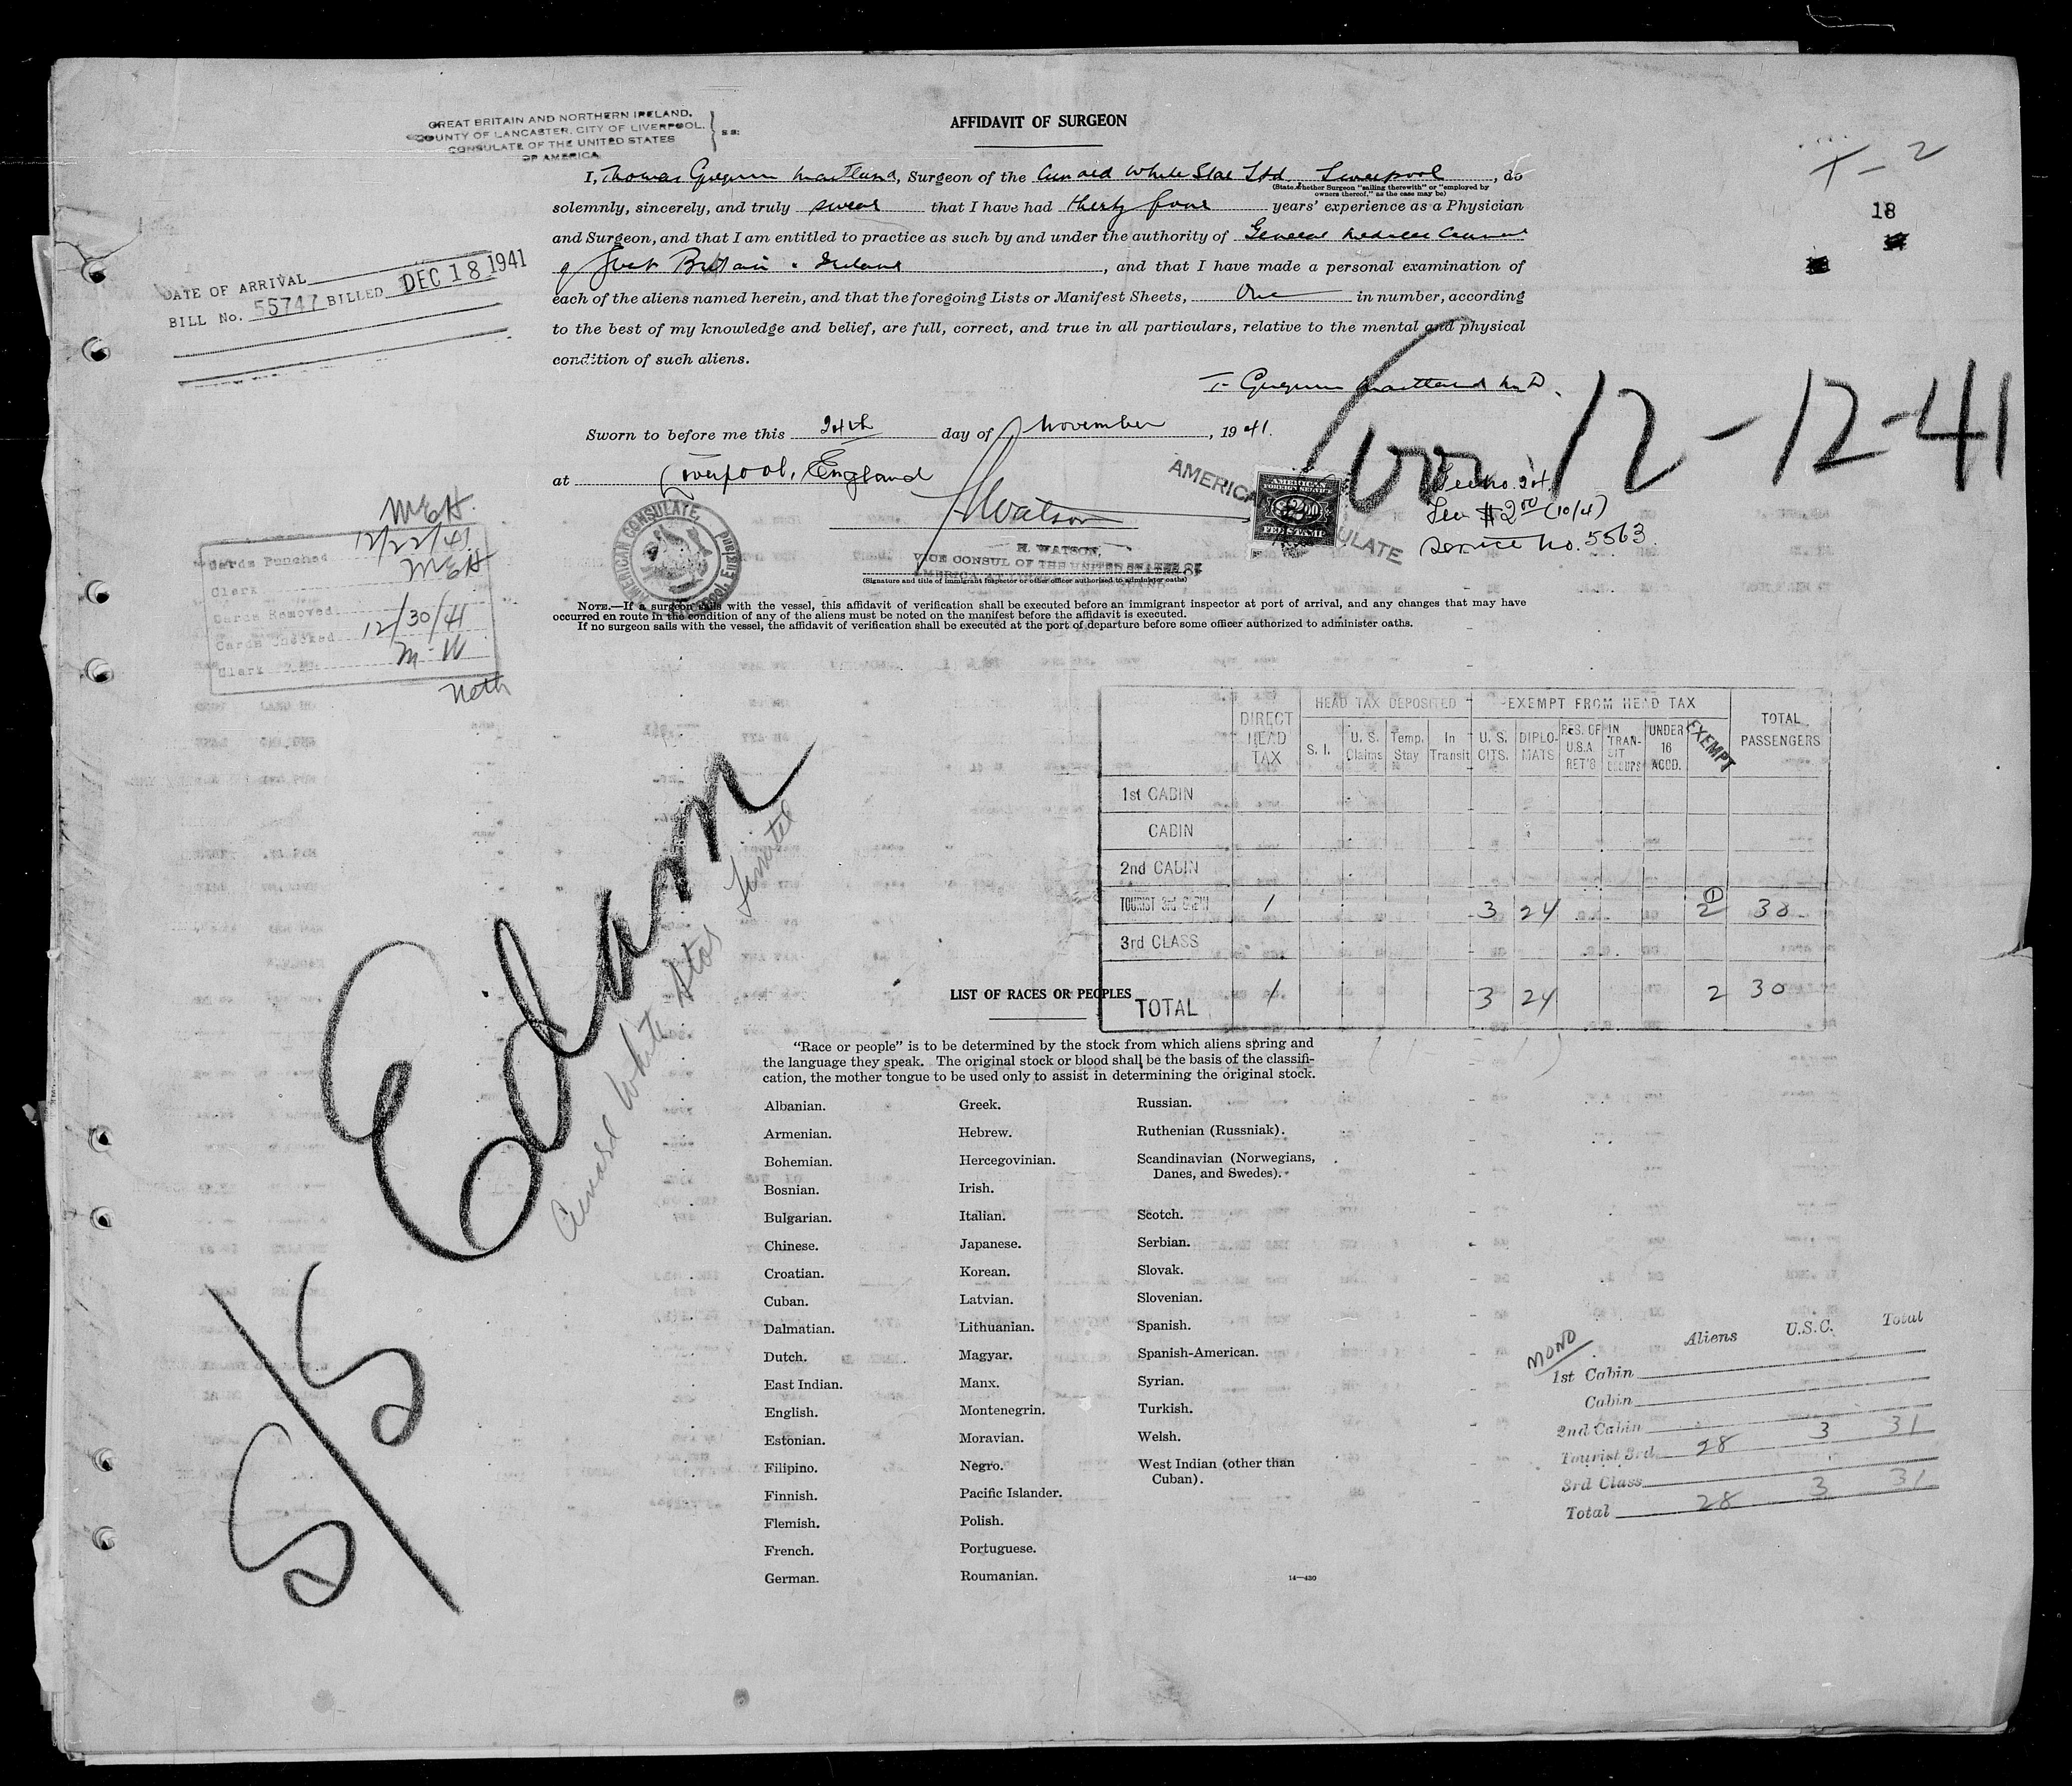 T- 2
18
GREAT BRITAIN AND NORTHERN IRELAND.
COUNTY OF LANCASTER. CITY OF LIVERPOOL.
CONSULATE OF THE UNITED STATES
OF AMERICA
SS:
AFFIDAVIT OF SURGEON
I, Thomas Maitland, Surgeon of the Cunard White Star Ltd Liverpool, do
(State whether Surgeon "sailing therewith" or "employed by
owners thereof," as the case may be)
solemnly, sincerely, and truly swear that I have had thirty four years' experience as a Physician
and Surgeon, and that I am entitled to practice as such by and under the authority of General Medical Council
of Great Britain & Ireland, and that I have made a personal examination of
each of the aliens named herein, and that the foregoing Lists or Manifest Sheets, One in number, according
to the best of my knowledge and belief, are full, correct, and true in all particulars, relative to the mental and physical
condition of such aliens.
DATE OF ARRIVAL
BILL No. 55747 BILLED DEC 18 1941
T- Maitland M.D.
12-12-41
Sworn to before me this 24th day of November, 1941.
at Liverpool, England
H Watson
H. WATSON,
VICE CONSUL OF THE UNITED STATES OF
(Signature and title of immigrant inspector or other officer authorized to administer oaths)
AMERICAN CONSULATE,
Liverpool, England
AMERICAN
FOREIGN SERVICE
$2.00
FEE STAMP
AMERICA
ULATE
Fee $2.00 (10/4)
Service No. 5563.
MEH
Cards Punched 12/22/41
Clerk MEH
Cards Removed
Cards Checked 12/30/41
Clerk M-W
Neth
NOTE.—If a surgeon sails with the vessel, this affidavit of verification shall be executed before an immigrant inspector at port of arrival, and any changes that may have
occurred en route in the condition of any of the aliens must be noted on the manifest before the affidavit is executed.
If no surgeon sails with the vessel, the affidavit of verification shall be executed at the port of departure before some officer authorized to administer oaths.
DIRECT HEAD TAX
HEAD TAX DEPOSITED
EXEMPT FROM HEAD TAX
TOTAL PASSENGERS
S. I.
U. S. Claims
Temp. Stay
In Transit
U. S. CITS.
DIPLO- MATS
RES. OF U.S.A RET'G
IN TRAN- SIT GROUPS
UNDER 16 ACCD.
EXEMPT
1st CABIN
CABIN
2nd CABIN
TOURIST 3rd CABIN 1 3 24 2 1 30
3rd CLASS
TOTAL 1 3 24 2 30
S/S Edam
Cunard White Star Limited
LIST OF RACES OR PEOPLES
"Race or people" is to be determined by the stock from which aliens spring and
the language they speak. The original stock or blood shall be the basis of the classifi-
cation, the mother tongue to be used only to assist in determining the original stock.
Albanian.
Armenian.
Bohemian.
Bosnian.
Bulgarian.
Chinese.
Croatian.
Cuban.
Dalmatian.
Dutch.
East Indian.
English.
Estonian.
Filipino.
Finnish.
Flemish.
French.
German.
Greek.
Hebrew.
Hercegovinian.
Irish.
Italian.
Japanese.
Korean.
Latvian.
Lithuanian.
Magyar.
Manx.
Montenegrin.
Moravian.
Negro.
Pacific Islander.
Polish.
Portuguese.
Roumanian.
Russian.
Ruthenian (Russniak).
Scandinavian (Norwegians,
Danes, and Swedes).
Scotch.
Serbian.
Slovak.
Slovenian.
Spanish.
Spanish-American.
Syrian.
Turkish.
Welsh.
West Indian (other than
Cuban).
14—430
MOND
Aliens U.S.C. Total
1st Cabin
Cabin
2nd Cabin
Tourist 3rd 28 3 31
3rd Class
Total 28 3 31